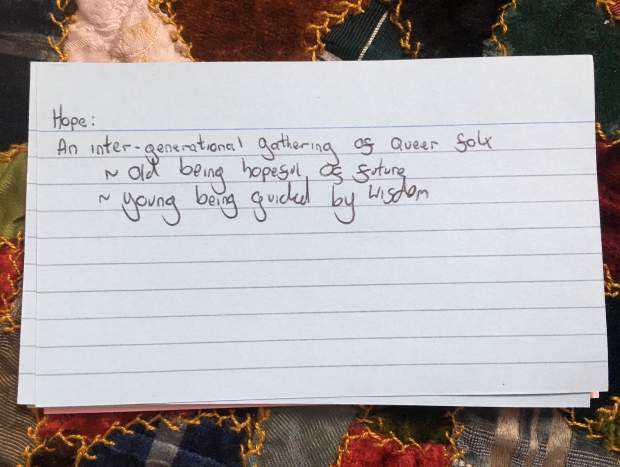 Hope:
An inter-generational gathering of Queer folx
~ old being hopeful of future
~ young being guided by wisdom